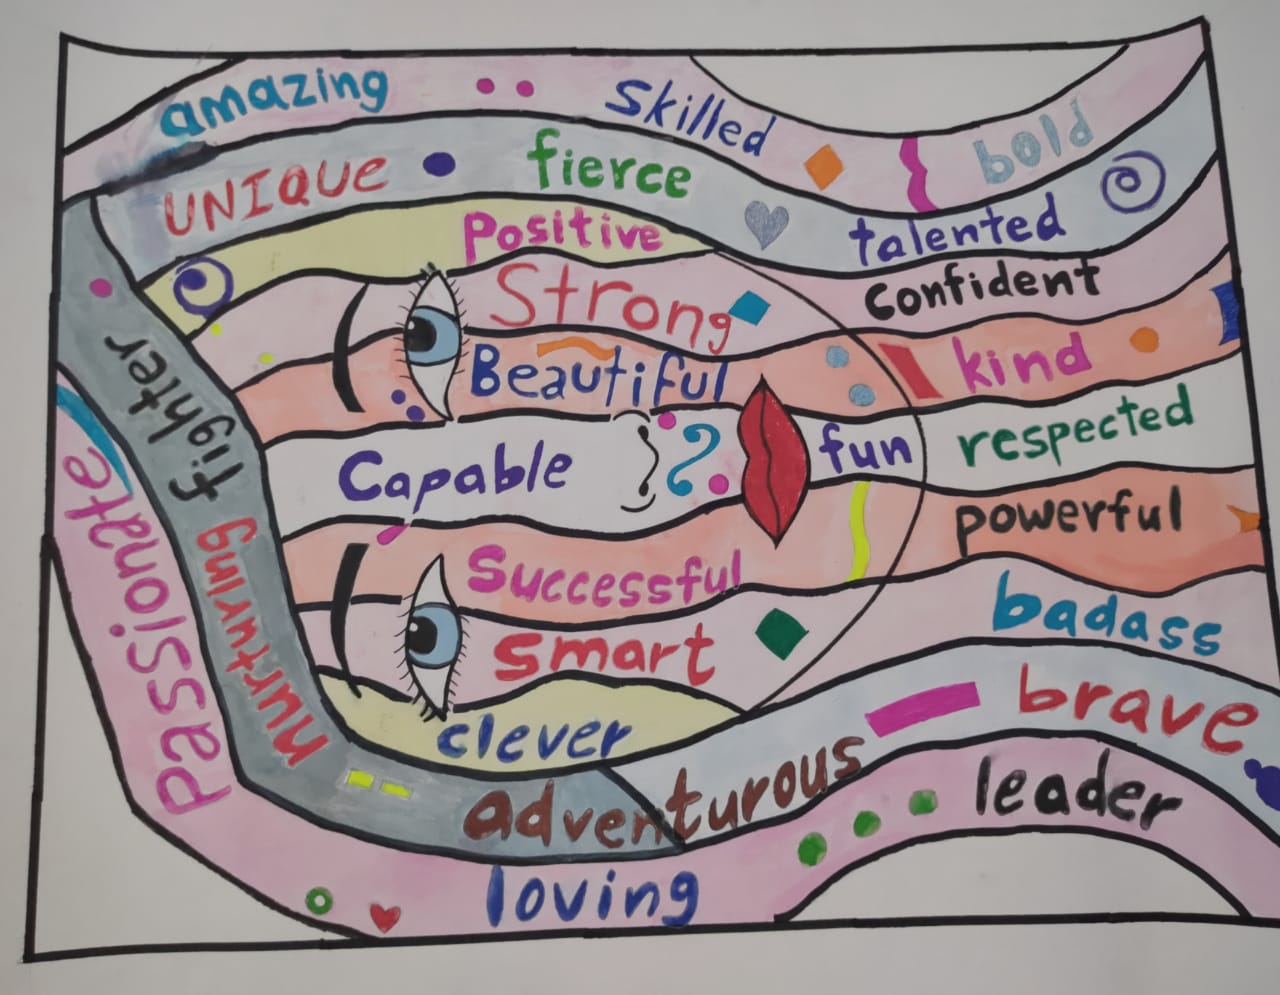 amazing
Skilled
bold
UNIQUE
fierce
talented
Positive
confident
Strong
kind
Beautiful
respected
Capable
fun
powerful
Successful
badass
smart
brave
clever
adventurous
leader
loving
fighter
nurturing
passionate